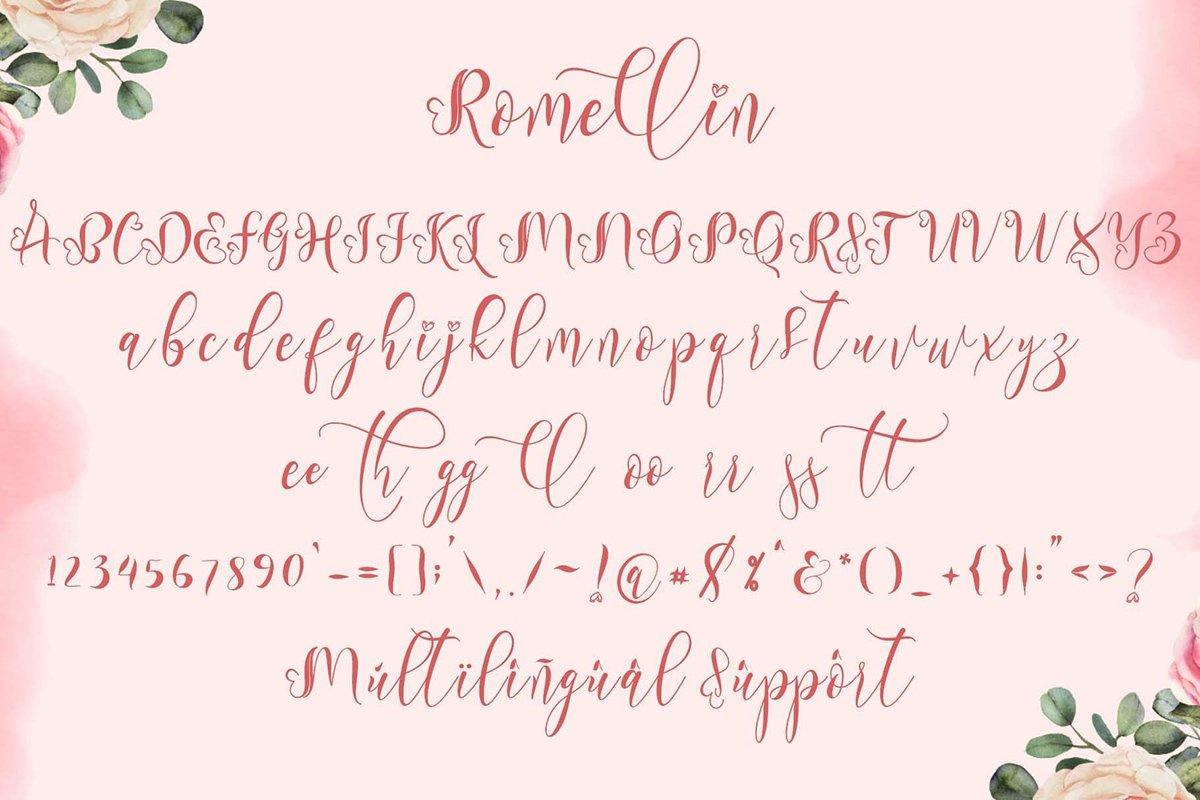 Romellin
ABCDEFGHIJKLMNOPQRSTUVWXYZ
abcdefghijklmnopqrstuvwxyz
ee th gg ll oo rr ss tt
1234567890`-=[];'\,./~!@#$%^&*()_+{}|:"<>?
Múltïlîñgûâl Sûppôrt